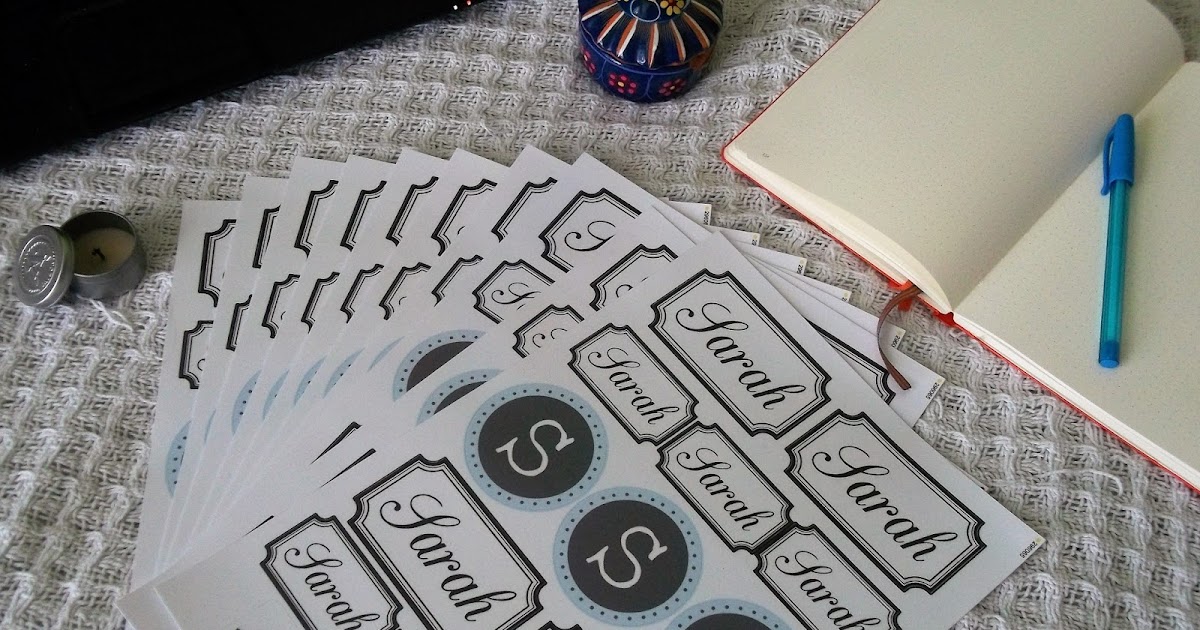 Sarah
Sarah
Sarah
Sarah
Sarah
Sarah
Sarah
S
S